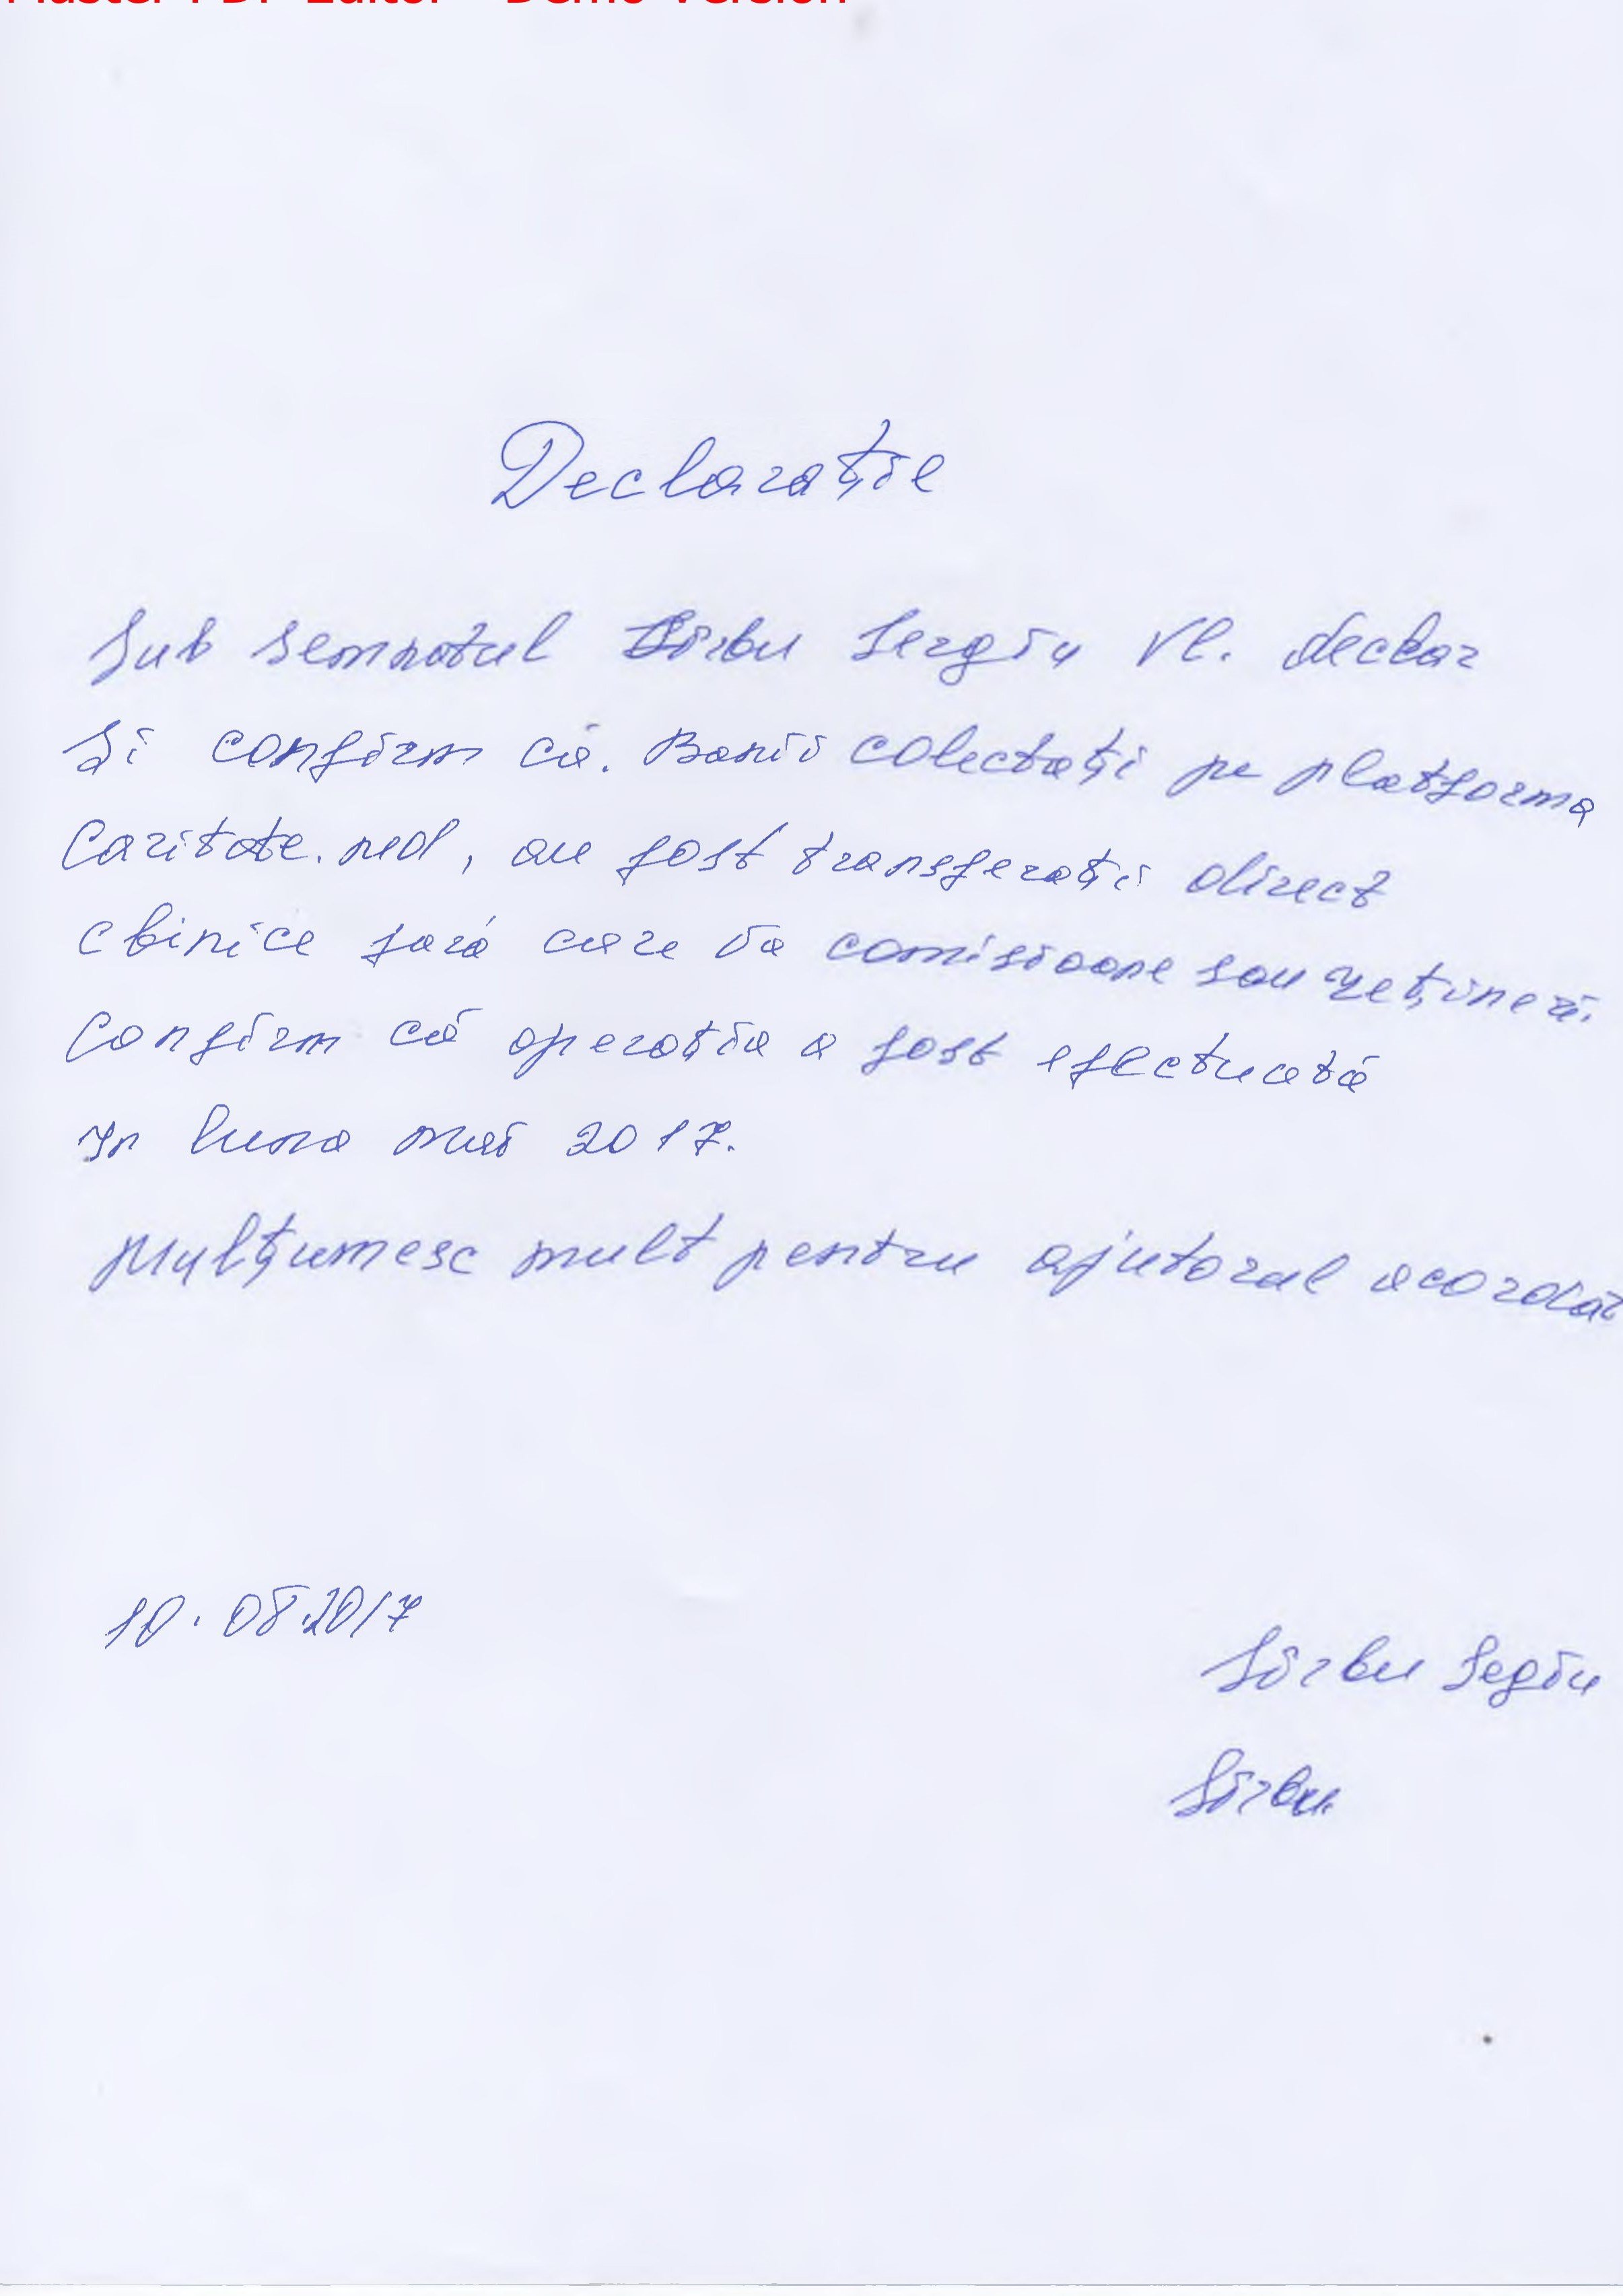 Master PDF Editor - Demo Version
Declarație
Sub semnatul Sîrbu Sergiu Vl. declar
Și confirm că. Banii colectați pe platforma
Caritate.md, au fost transferații direct
clinice fară care va comisioane sau rețineri.
Confirm că operația a fost efectuată
In luna mai 2017.
Mulțumesc mult pentru ajutorul acordat
10.08.2017
Sîrbu Segiu
Sîrbu